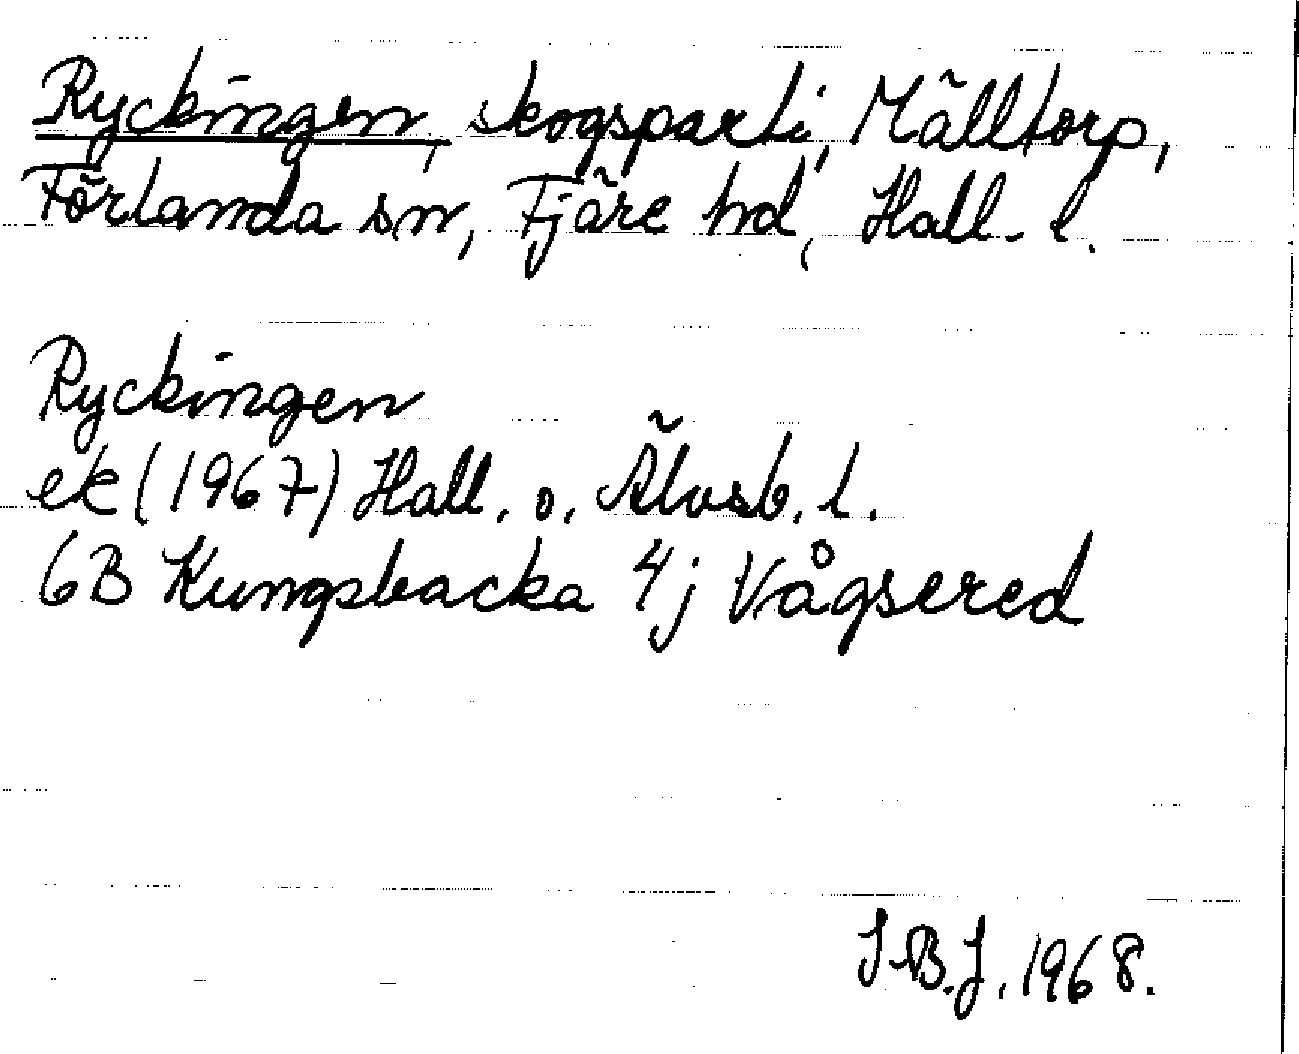 Ryckingen, skogsparti, Mälltorp,
Förlanda sn, Fjäre hd, Hall. l.
Ryckingen
ek (1967) Hall. o. Älvsb. l.
6B Kungsbacka 4j Vågsered
I.B.J. 1968.